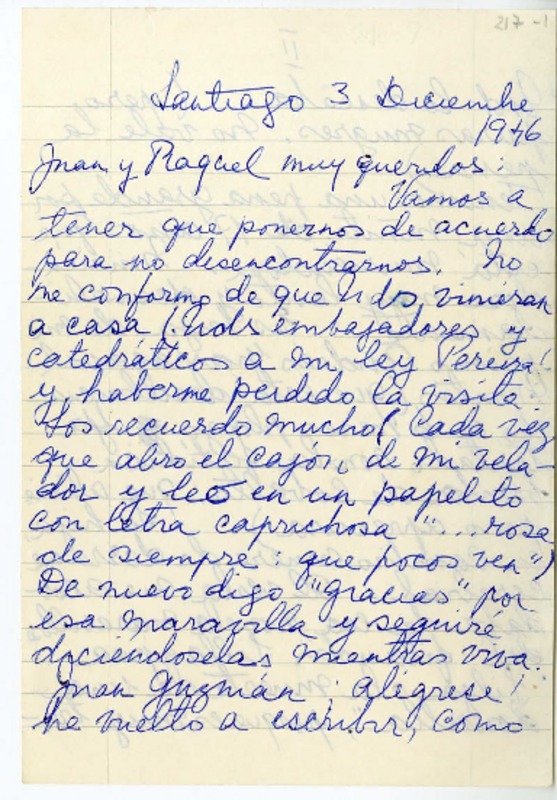 217-1
Santiago 3 Diciembre
1976
Juan y Raquel muy queridos:
Vamos a
tener que ponernos de acuerdo
para no desencontrarnos. No
me conformo de que Uds vinieran
a casa (Uds embajadores y
catedráticos a mi ley Pereira!
y haberme perdido la visita.
Los recuerdo mucho (Cada vez
que abro el cajón de mi vela-
dor y leo en un papelito
con letra caprichosa "... rosa
de siempre: que pocos ven")
De nuevo digo "gracias" por
esa maravilla y seguiré
diciéndoselas mientras viva.
Juan Guzmán; alégrese!
he vuelto a escribir, como